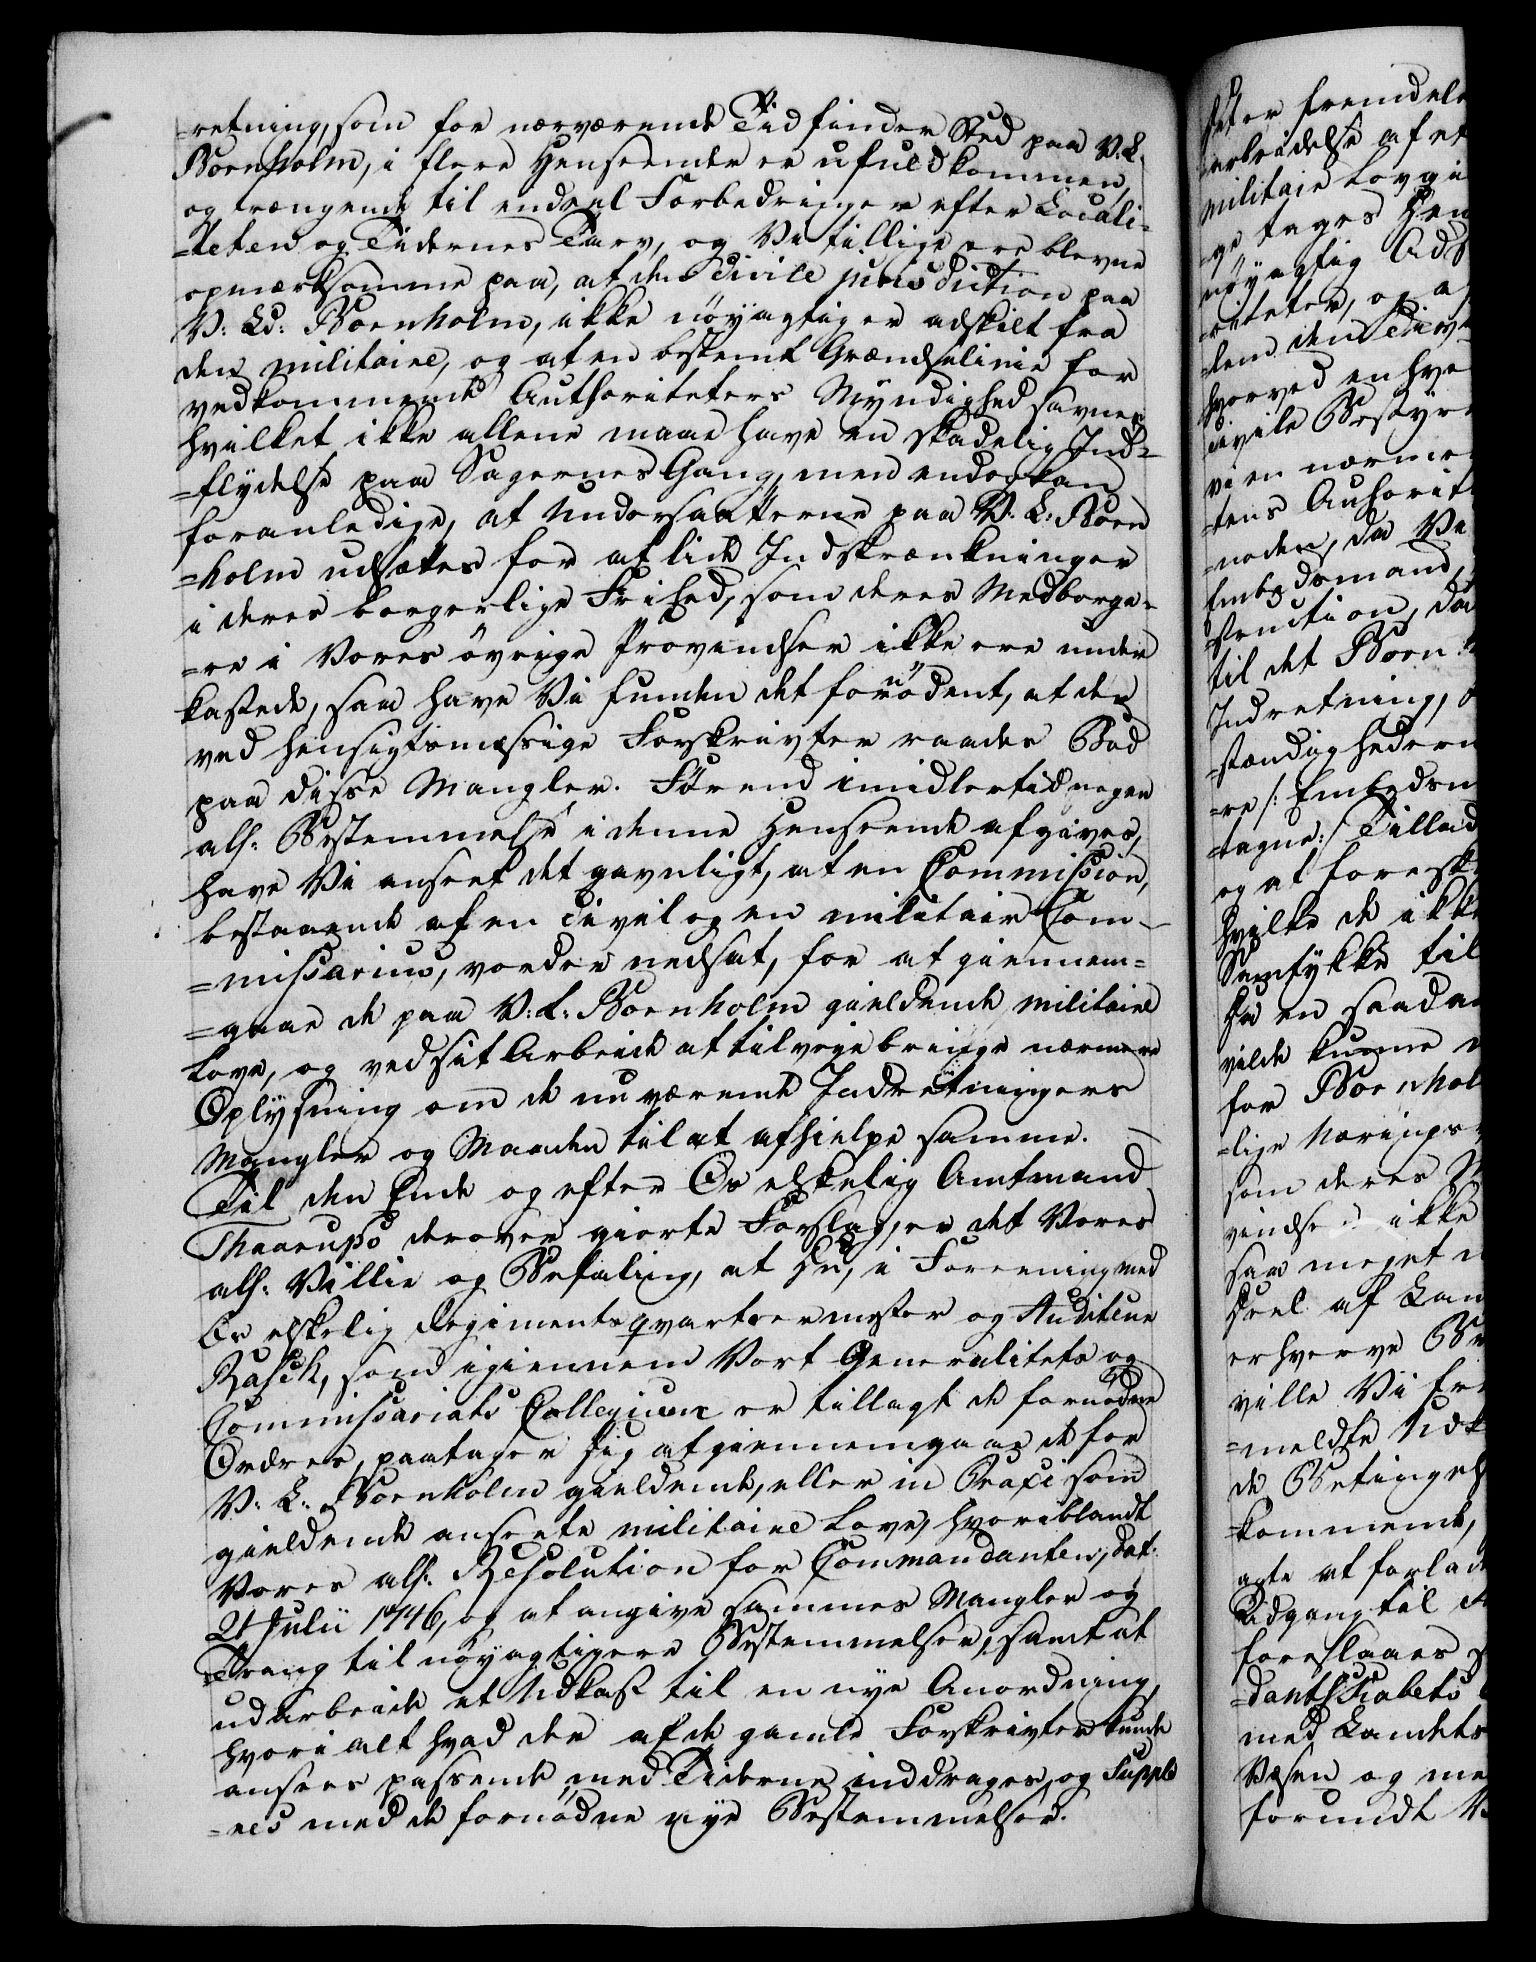 =retning, som for nærværende Tid finder Sted paa V. L.
Bornholm, i flere Henseender er ufuldkommen,
og trængende til endeel Forbedringer efter Locali-
=teten og Tidernes Tarv, og Vi tillige ere blevne
opmærksomme paa, at den Civile jurisdiction paa
V: Ld: Bornholm, ikke nöyagtig er adskilt fra
den militaire, og at en bestemt Grændselinie for
vedkommende Authoriteters Myndighed savnes,
hvilket ikke allene maae have en skadelig Ind-
=flydelse paa Sagernes Gang, men endog kan
foranledige, at Undersaatterne paa V. L: Born
=holm udsættes for aflide Indskrænkninger
i deres borgerlige Frihed, som deres Medborge-
=re i Vores övrige Provindser ikke ere under
kastede, saa have Vi funden det fornödent, at der
ved hensigtsmæssige Forskrivter raades Bod
paa disse Mangler. Förend imidlertid nogen
alh: Bestemmelse i denne Henseende afgives,
have Vi anseet det gavnligt, at en Commission,
bestaaende af en Civil og en militair Com-
=missarius, vorder nedsat, for at giennem=
=gaae de paa V: L: Bornholm gieldende militaire
Love, og ved sit Arbeide at tilveyebringe nærmere
Oplysning om de nu værende Indretningers
Mangler og Maaden til at afhielpe samme.
Til den Ende og efter Os elskelig Amtmand
Thaarups derover giorte Forslag, er det Vores
alh: Villie og Befaling, at Hn, i Foreening med
Os elskelig Regimentsqvarteermester og Auditeur
Rasch, som igiennem Vort Generalitets og
Commissariats Collegium er tillagt de fornödne
Ordres, paatager sig at giennemgaae de for
V: L: Bornholm gieldende, eller in Praxi som
gieldende ansete militaire Love, hvoriblandt
Vores alh: Resolution for Commandanten, dat:
21 Julii 1746, og at angive sammes Mangler og
Trang til nöyagtigere Bestemmelser, samt at
udarbeide et Udkast til en nye Anordning,
hvori alt hvad der af de gamle Forskrivter kunde
ansees passende med Tiderne inddrages, og supple
=res med de fornödne nye Bestemmelser.
=tet er fremdele
=arbeidelse af et
militaie Lovgi
=ge tages Hen
nöyagtig Ads
=riteter, og a
=lem den Civi
hvorved enhve
civile Bestyre
vi en nærme
=tens Authorit
=noder, da Ve
Embedsmand,
=struction, da
til det Born
Indretning, o
=stændighedern
=re /: Embedsm
=tagne :/ Tillad
og at foresk
hvilke de ikke
Samtykke til
da en saadan
vilde kunne
for Bornhol
=lige Nærings
som deres M
vindser ikke
saa meget
Heel af Lan
erhverve Br
ville Vi fr
=meldte Udk
de Betingels
=kommende,
agte at forlad
Adgang til
foreslaaes
=dantskabets
med Landets
Væsen og me
forundt V